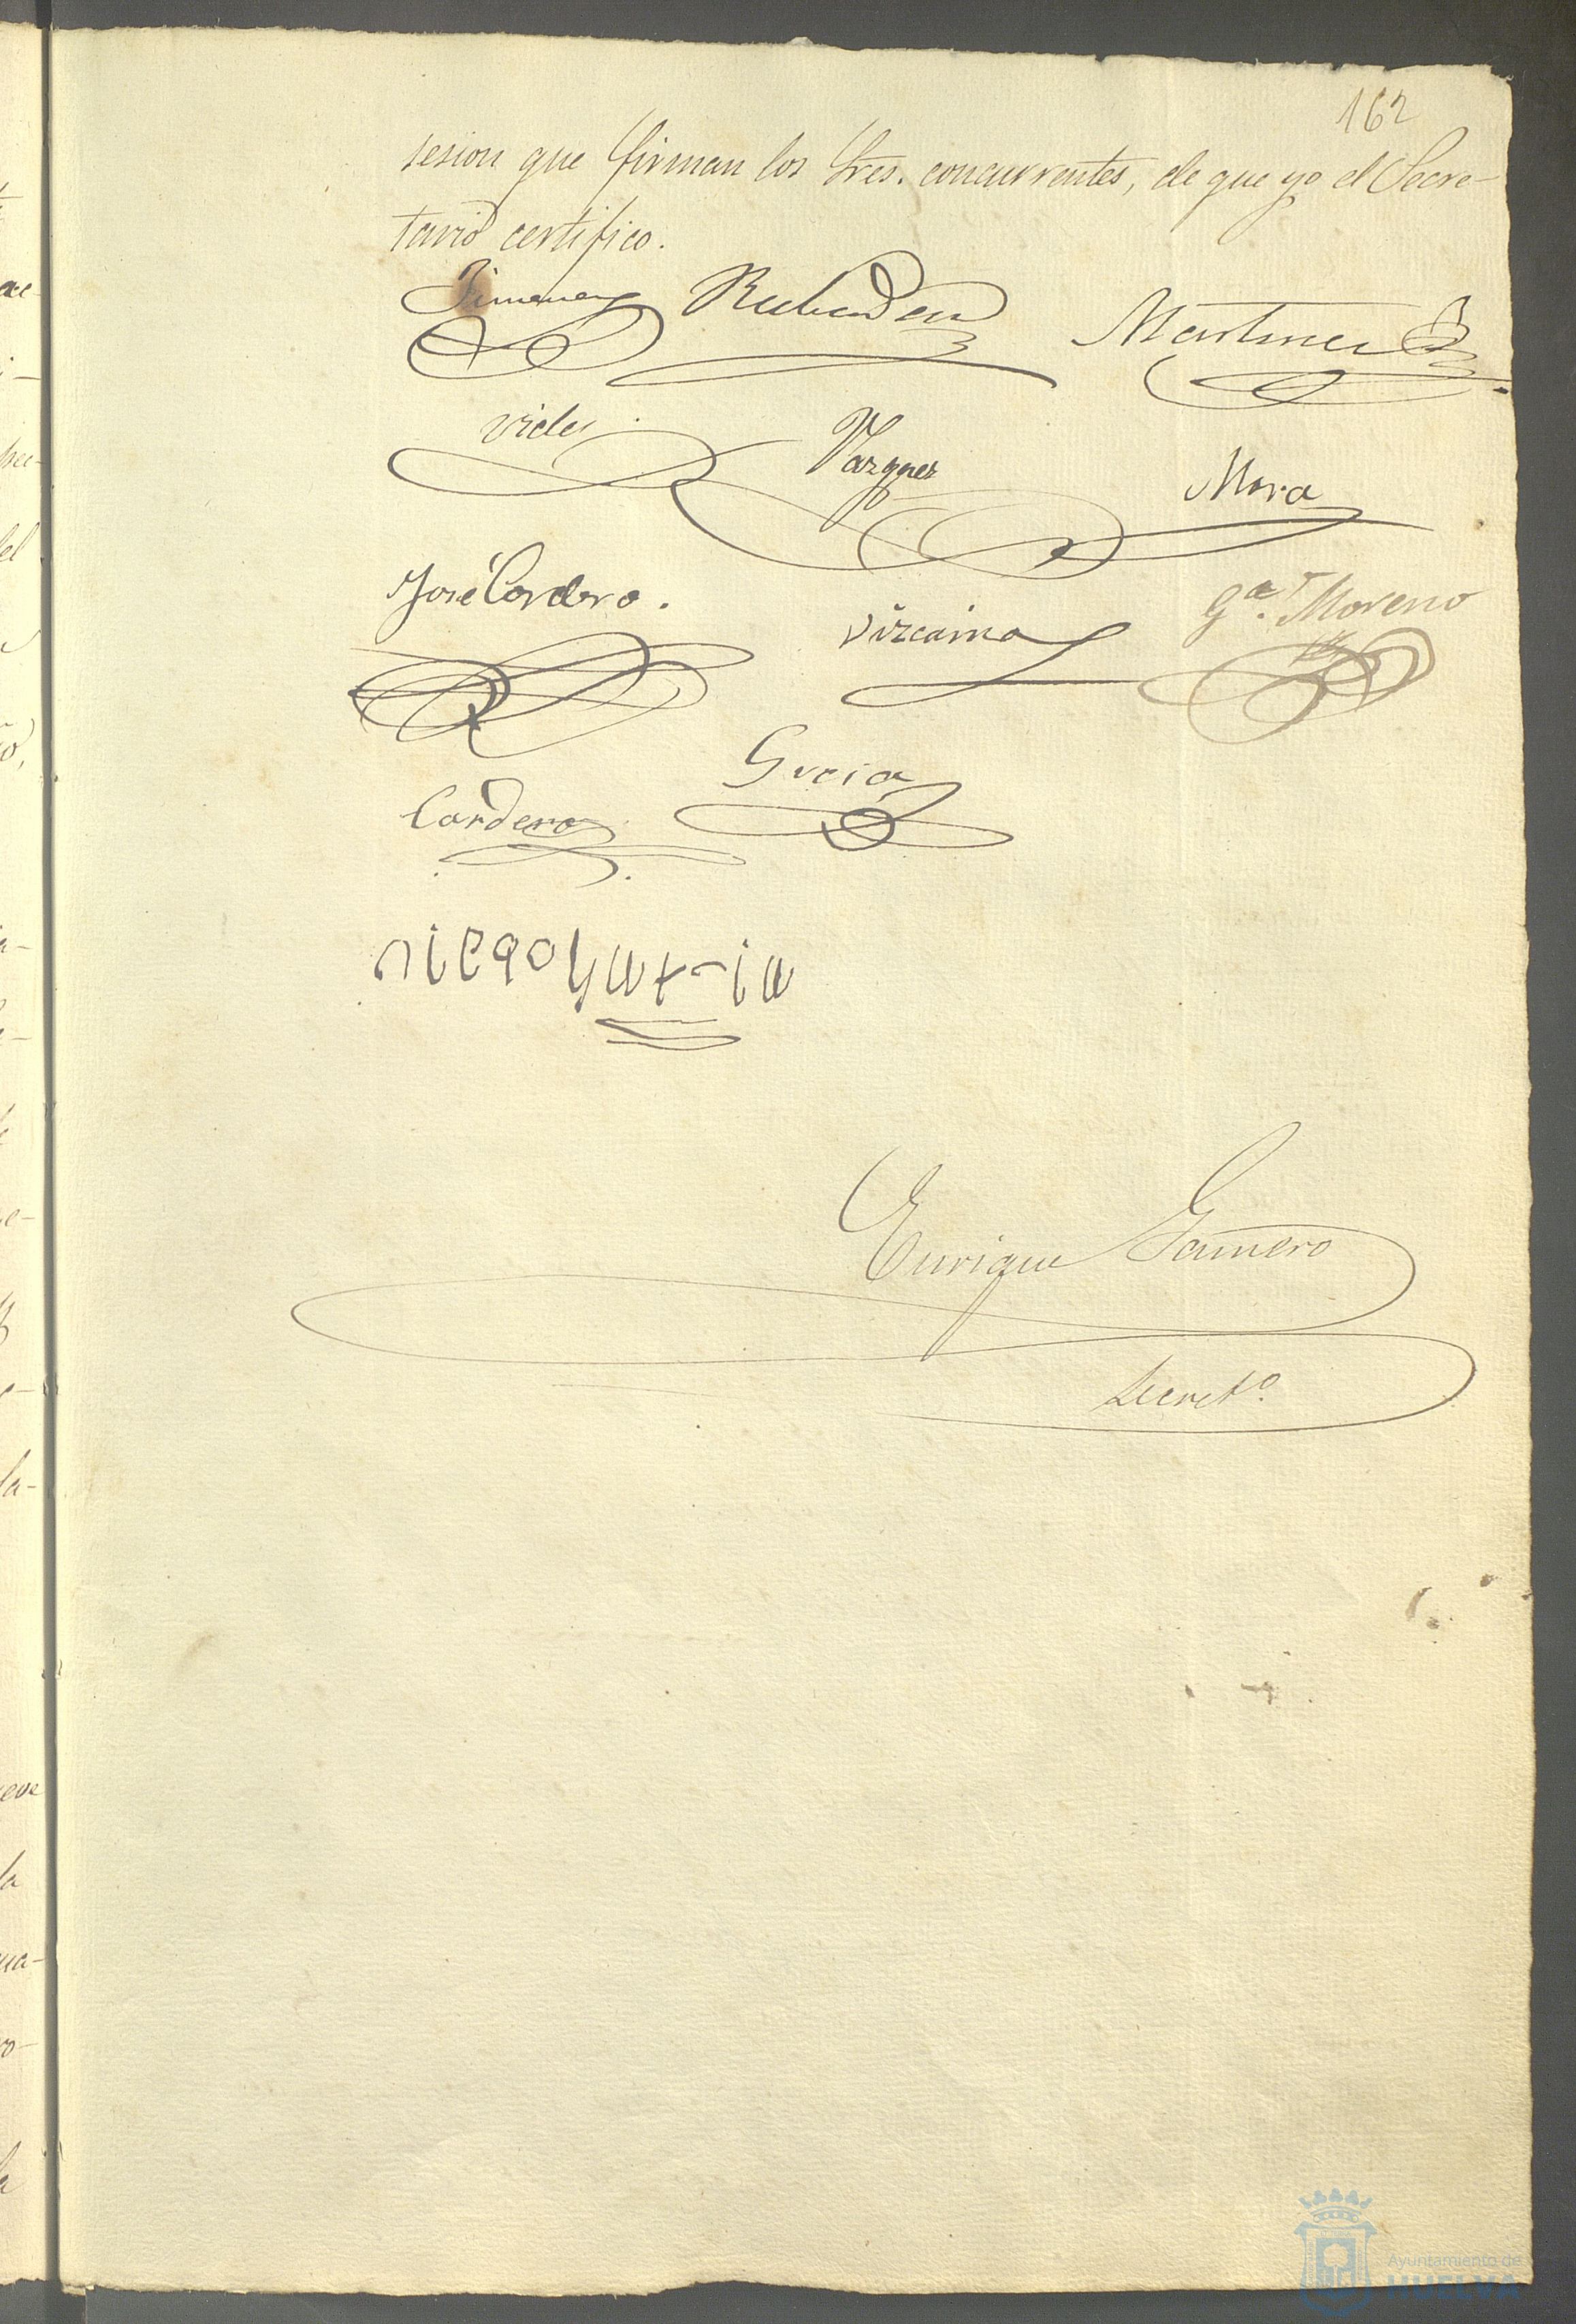 162
sesion que firman los Sres. concurrentes, de que yo el Secre-
tario certifico.
Jimenez Martinez
Vazquez Mora
José Cordero. Vizcaino Ga. Moreno
Garcia
Cordero
Enrique Gamero
Secretº.
Ayuntamiento de
HUELVA